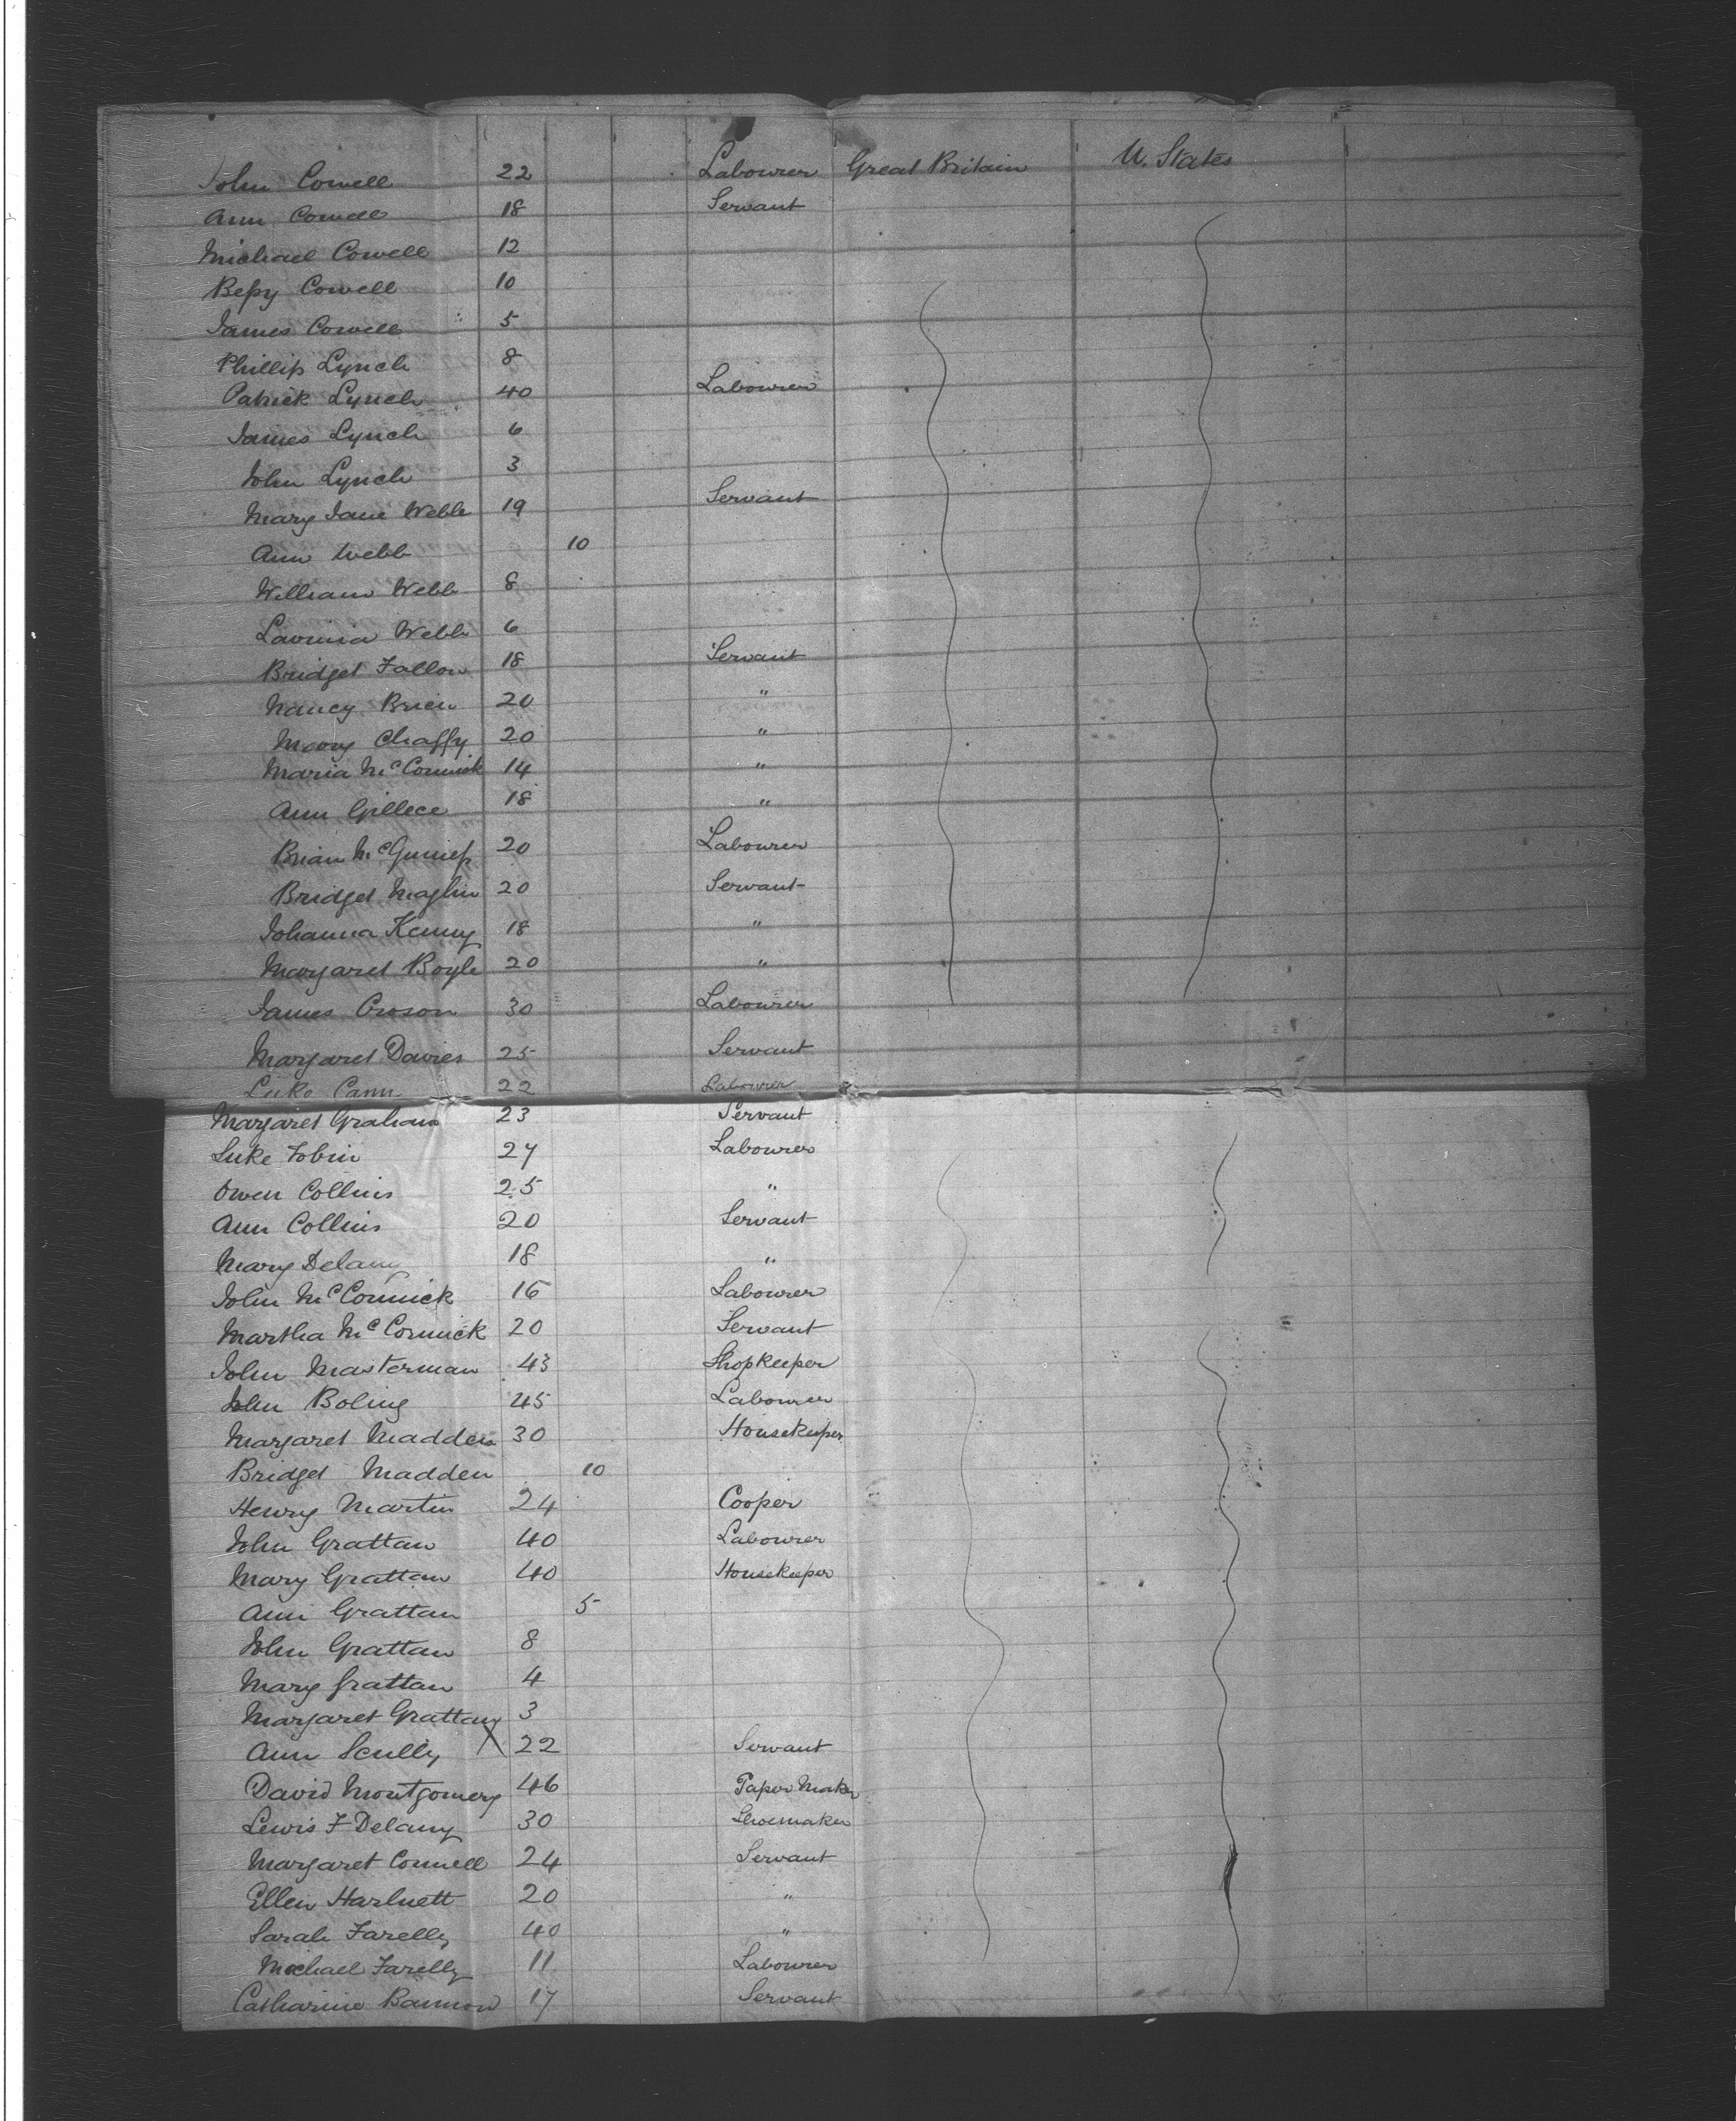 John Cowell 22 Labourer Great Britain U. States
Ann Cowell 18 Servant
Michael Cowell 12
Bessy Cowell 10
James Cowell 5
Phillip Lynch 8
Patrick Lynch 40 Labourer
James Lynch 6
John Lynch 3
Mary Jane Webb 19 Servant
Ann Webb 10
William Webb 8
Lavinia Webb 6
Bridget Fallon 18 Servant
Nancy Brien 20 "
Mary Chaffy 20 "
Maria McCormick 14 "
Ann Gillece 18 "
Brian McGuniss 20 Labourer
Bridget Maglin 20 Servant
Johanna Kenny 18 "
Margaret Boyle 20 "
James Croson 30 Labourer
Margaret Davies 25 Servant
Luke Cann 22 Labourer
Margaret Graham 23 Servant
Luke Tobin 27 Labourer
Owen Collins 25 "
Ann Collins 20 Servant
Mary Delany 18 "
John McCormick 16 Labourer
Martha McCormick 20 Servant
John Masterman 43 Shopkeeper
John Boling 45 Labourer
Margaret Madden 30 Housekeeper
Bridget Madden 10
Henry Martin 24 Cooper
John Grattan 40 Labourer
Mary Grattan 40 Housekeeper
Ann Grattan 5
John Grattan 8
Mary Grattan 4
Margaret Grattan 3
Ann Scully X 22 Servant
David Montgomery 46 Paper Maker
Lewis F Delany 30 Shoemaker
Margaret Connell 24 Servant
Ellen Harnett 20 "
Sarah Farelly 40 "
Michael Farelly 11 Labourer
Catharine Bannon 17 Servant